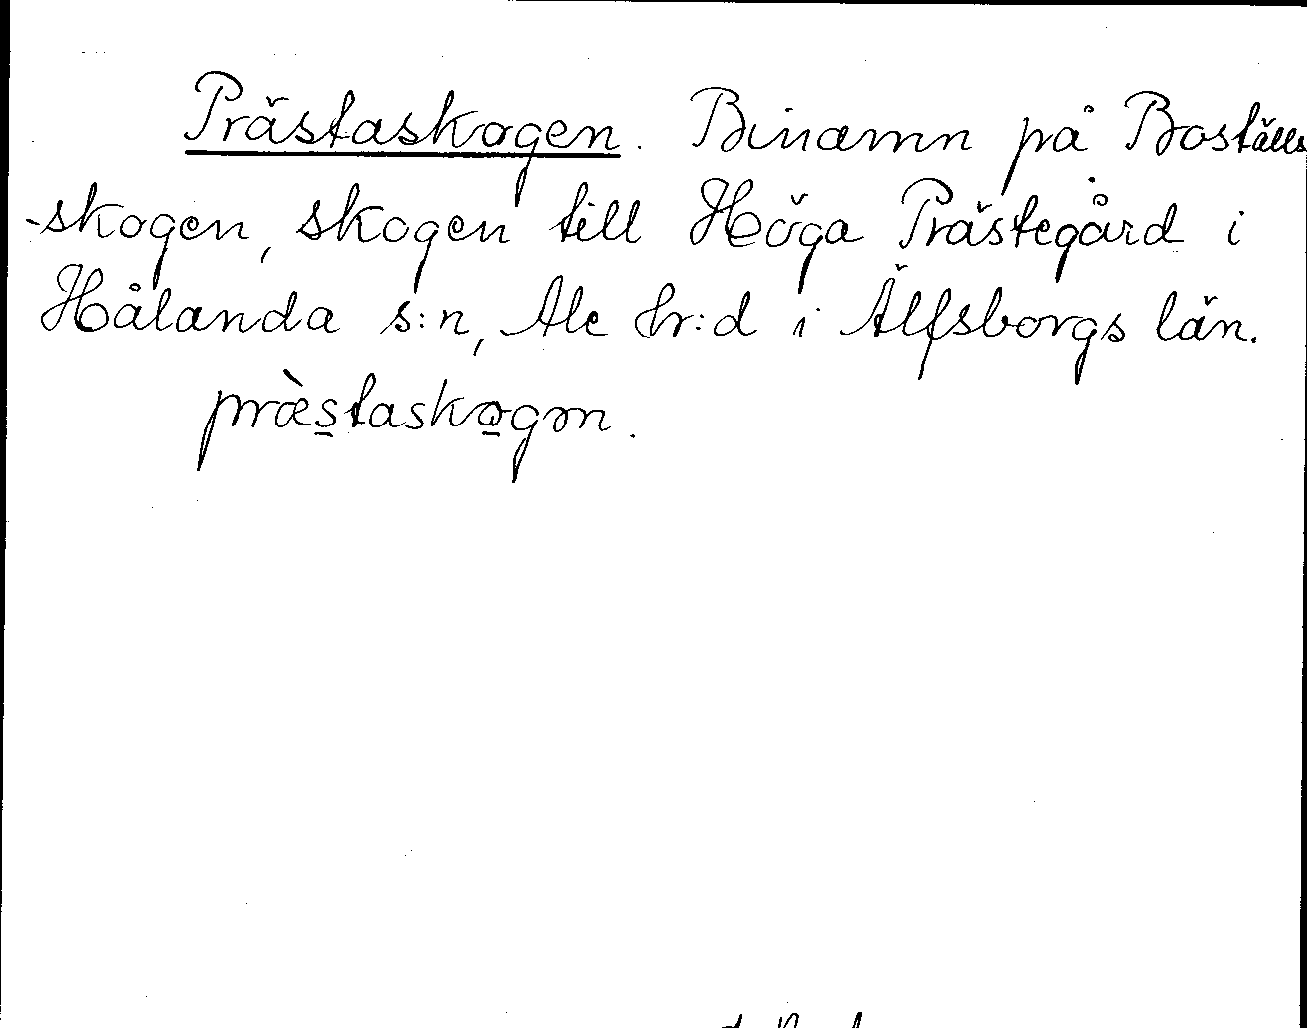 Prästaskogen. Binamn på Boställs
-skogen, skogen till Höga Prästegård i
Hålanda s:n, Ale hr:d i Älfsborgs län.
præ̀s̲tasko̲gən.